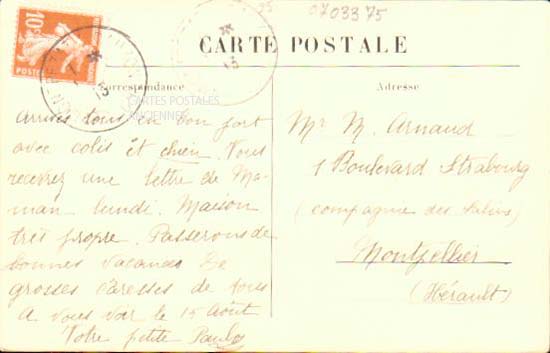 07033375
10c
CARTE POSTALE
Correspondance
Adresse
CARTES POSTALES
ANCIENNES
Arrivés tous en bon port
avec colis et chien. Vous
recevrez une lettre de Ma-
man lundi. Maison
très propre. Passerons de
bonnes vacances De
grosses caresses de tous
A vous voir le 15 Août
Votre petite Paule
Mr M. Arnaud
1 Boulevard Strabourg
(compagnie des Salins)
Montpellier
(Hérault)